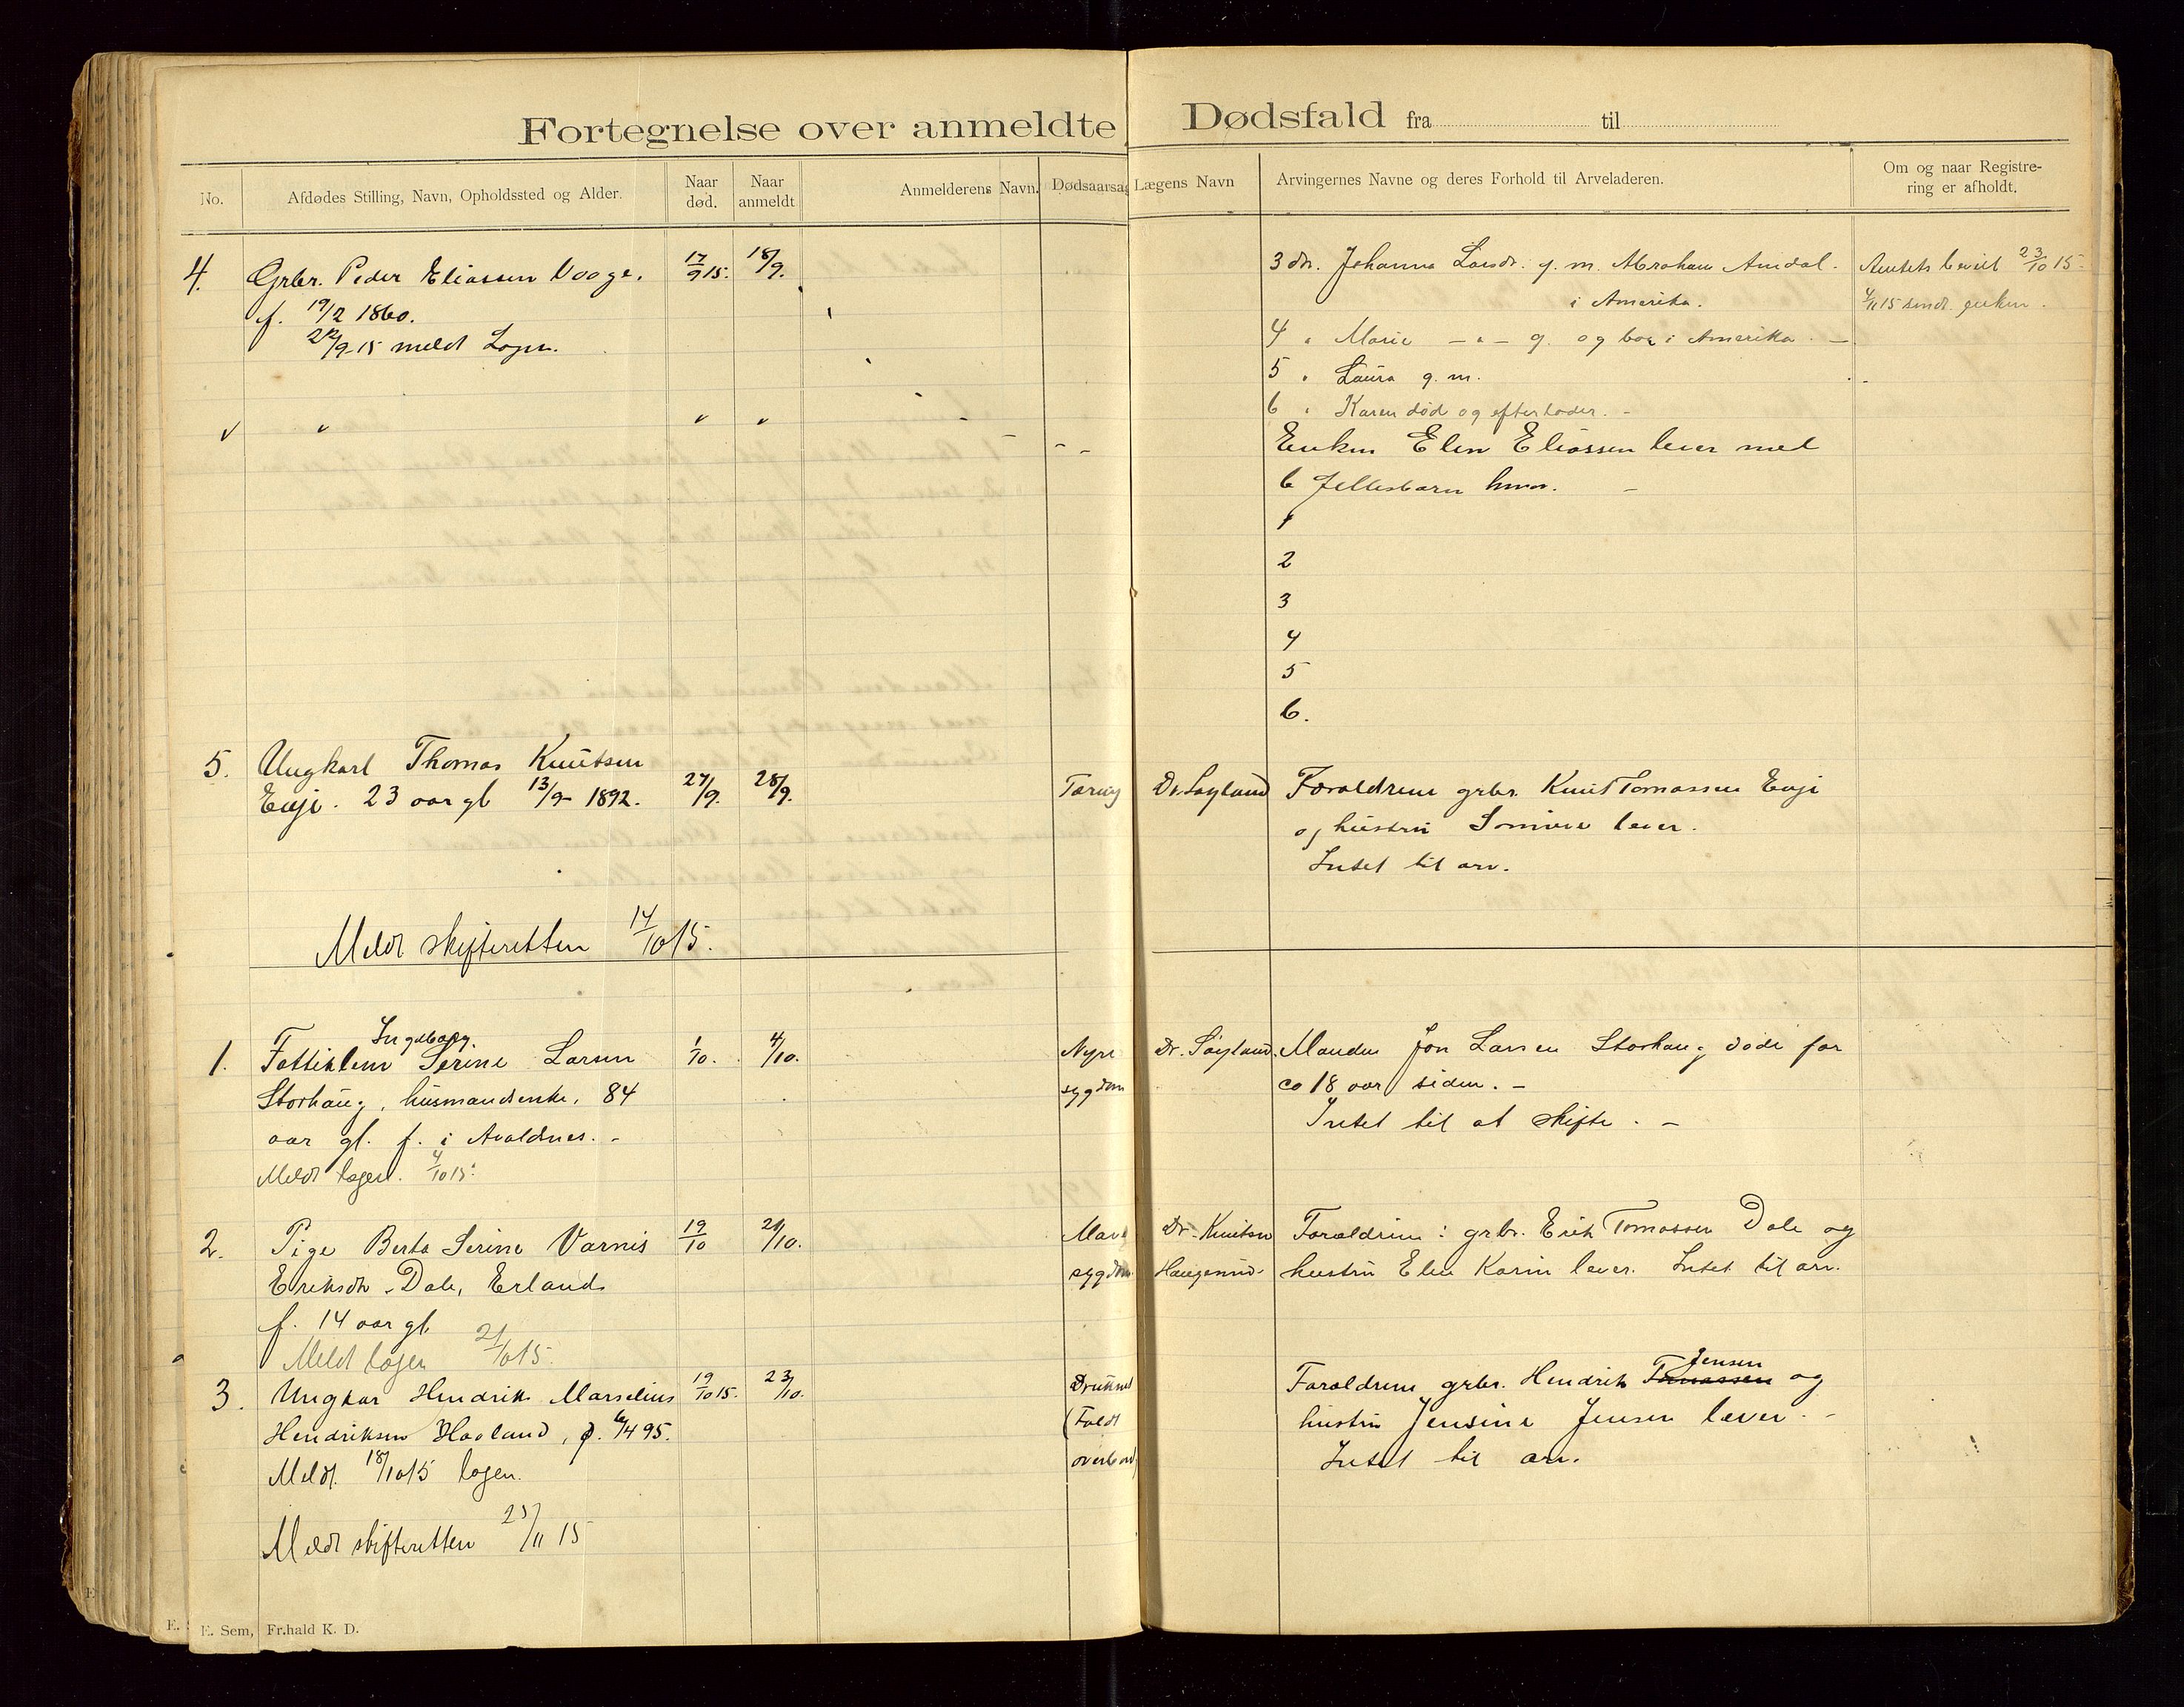 Fortegnelse over anmeldte Dødsfald fra til
No.
Afdødes Stilling, Navn, Opholdssted og Alder.
Naar død.
Naar anmeldt
Anmelderens Navn.
Dødsaarsag
Lægens Navn
Arvingernes Navne og deres Forhold til Arveladeren.
Om og naar Registrering er afholdt.
4. Grbr. Peder Eliassen Vaage. 17/9 15. 18/9.
f. 19/2 1860.
22/9 15 meldt Lagm.
3 dtr. Johanna Larsdr. g. m. Abraham Amdal.
i Amerika.
Amtets bevil 23/10 15.
4/11 15 sendt enken.
4 " Marie — " — g. og bor i Amerika. —
5 " Laura g. m.
6 " Karen død og efterlader. -
Enken Elen Eliassen lever med
6 fellesbarn hmm. —
1
2
3
4
5
6.
5. Ungkarl Thomas Knutsen
Euje. 23 aar gl 13/9 1892. 27/9. 28/9. Tæring Dr. Søyland
Foraldrene grbr. Knut Tomassen Euje
og hustru lever.
Intet til arv.
Meldt skifteretten 14/10 15.
1. Ingeborg
Fattiklem Serine Larsen 1/10. 4/10. Nyre Dr. Søyland.
Storhaug, husmandsenke, 84 sygdom
aar gl. f. i Avaldnes. -
Meldt lagen. 4/10 15.
Manden Jon Larsen Storhaug døde for
ca 18 aar siden. -
Intet til at skifte. -
2. Pige Berta Serine Varnis 19/10 21/10. Mave Dr. Knutsen
Eriksdtr. Dale, Erland sygdom Haugesund.
f. 14 aar gl.
Meldt lagen 21/10 15.
Foraldrene: grbr. Erik Tomassen Dale og
hustru Elen Karin lever. Intet til arv.
3. Ungkar Hendrik Marselius 19/10 15. 23/10. Druknet
Hendriksen Haaland, f. 6/4 95. (Faldt
Meldt. 18/10 15 lagen. overbord)
Foraldrene grbr. Hendrik Tomassen Jensen og
hustru Jensine Jensen lever. -
Intet til arv.
Meldt skifteretten 25/11 15
E. Sem, Fr.hald K. D.